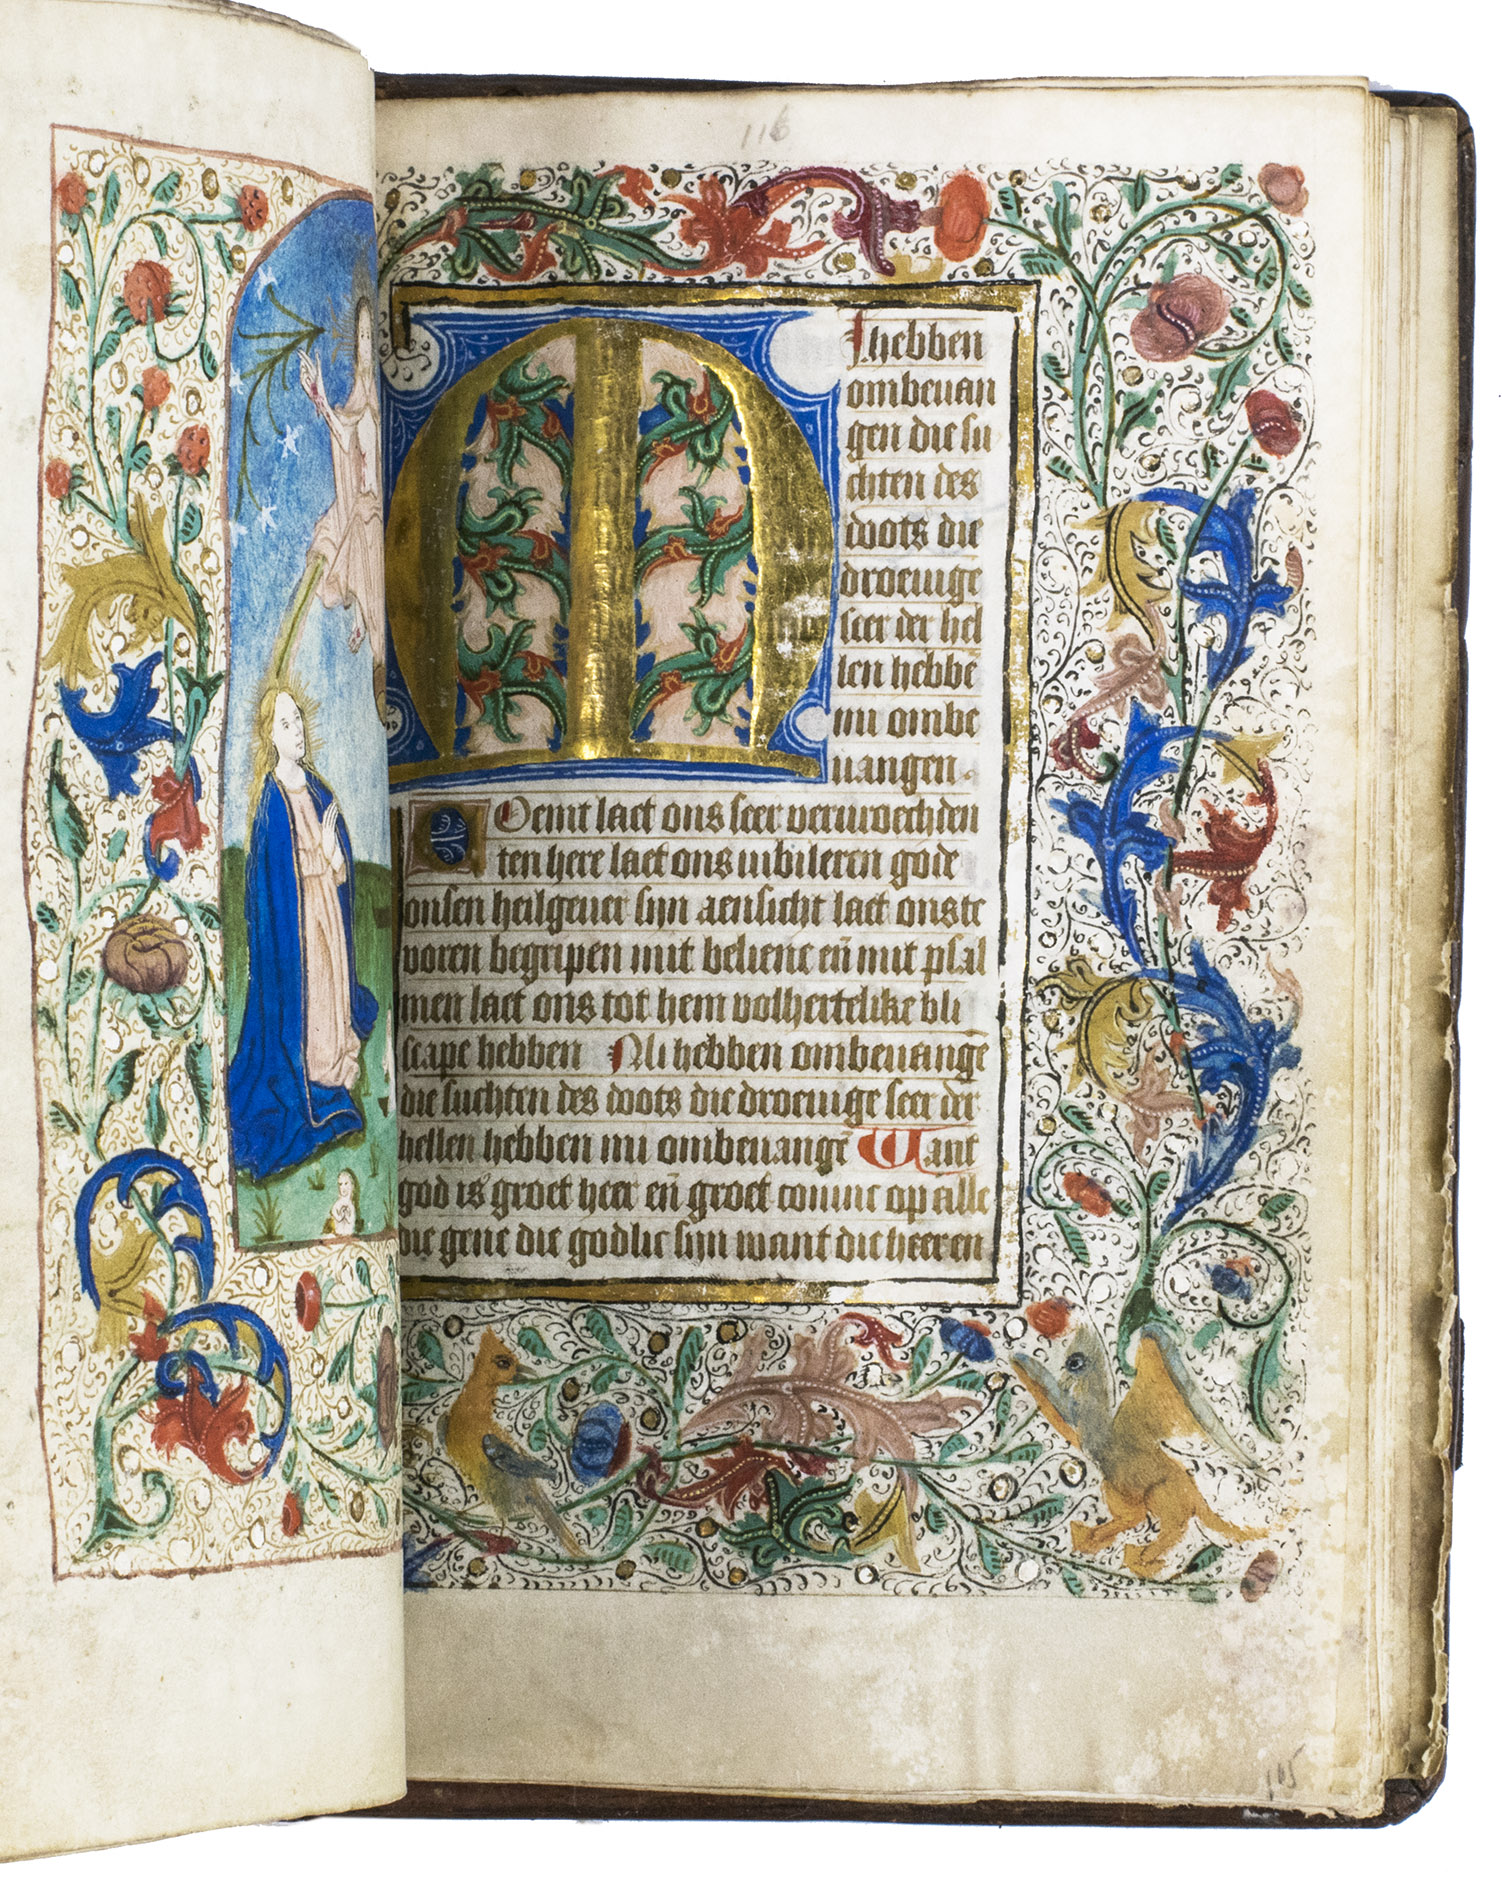 116
M I hebben
ombeuan
gen die su
chten des
doots die
droeuige
seer der hel
len hebbē
mi ombe
uangen.
Coemt laet ons seer veruroechden
ten here laet ons iubileren gode
onsen heilgeuer sijn aensicht laet ons te
voren begripen mit beliene eñ mit psal
men laet ons tot hem volhertelike bli
scape hebben Mi hebben ombeuangē
die suchten des doots die droeuige seer der
hellen hebben mi ombeuangē Want
god is groet heer eñ groet coninc op alle
die gene die godlic sijn want die heeren
115